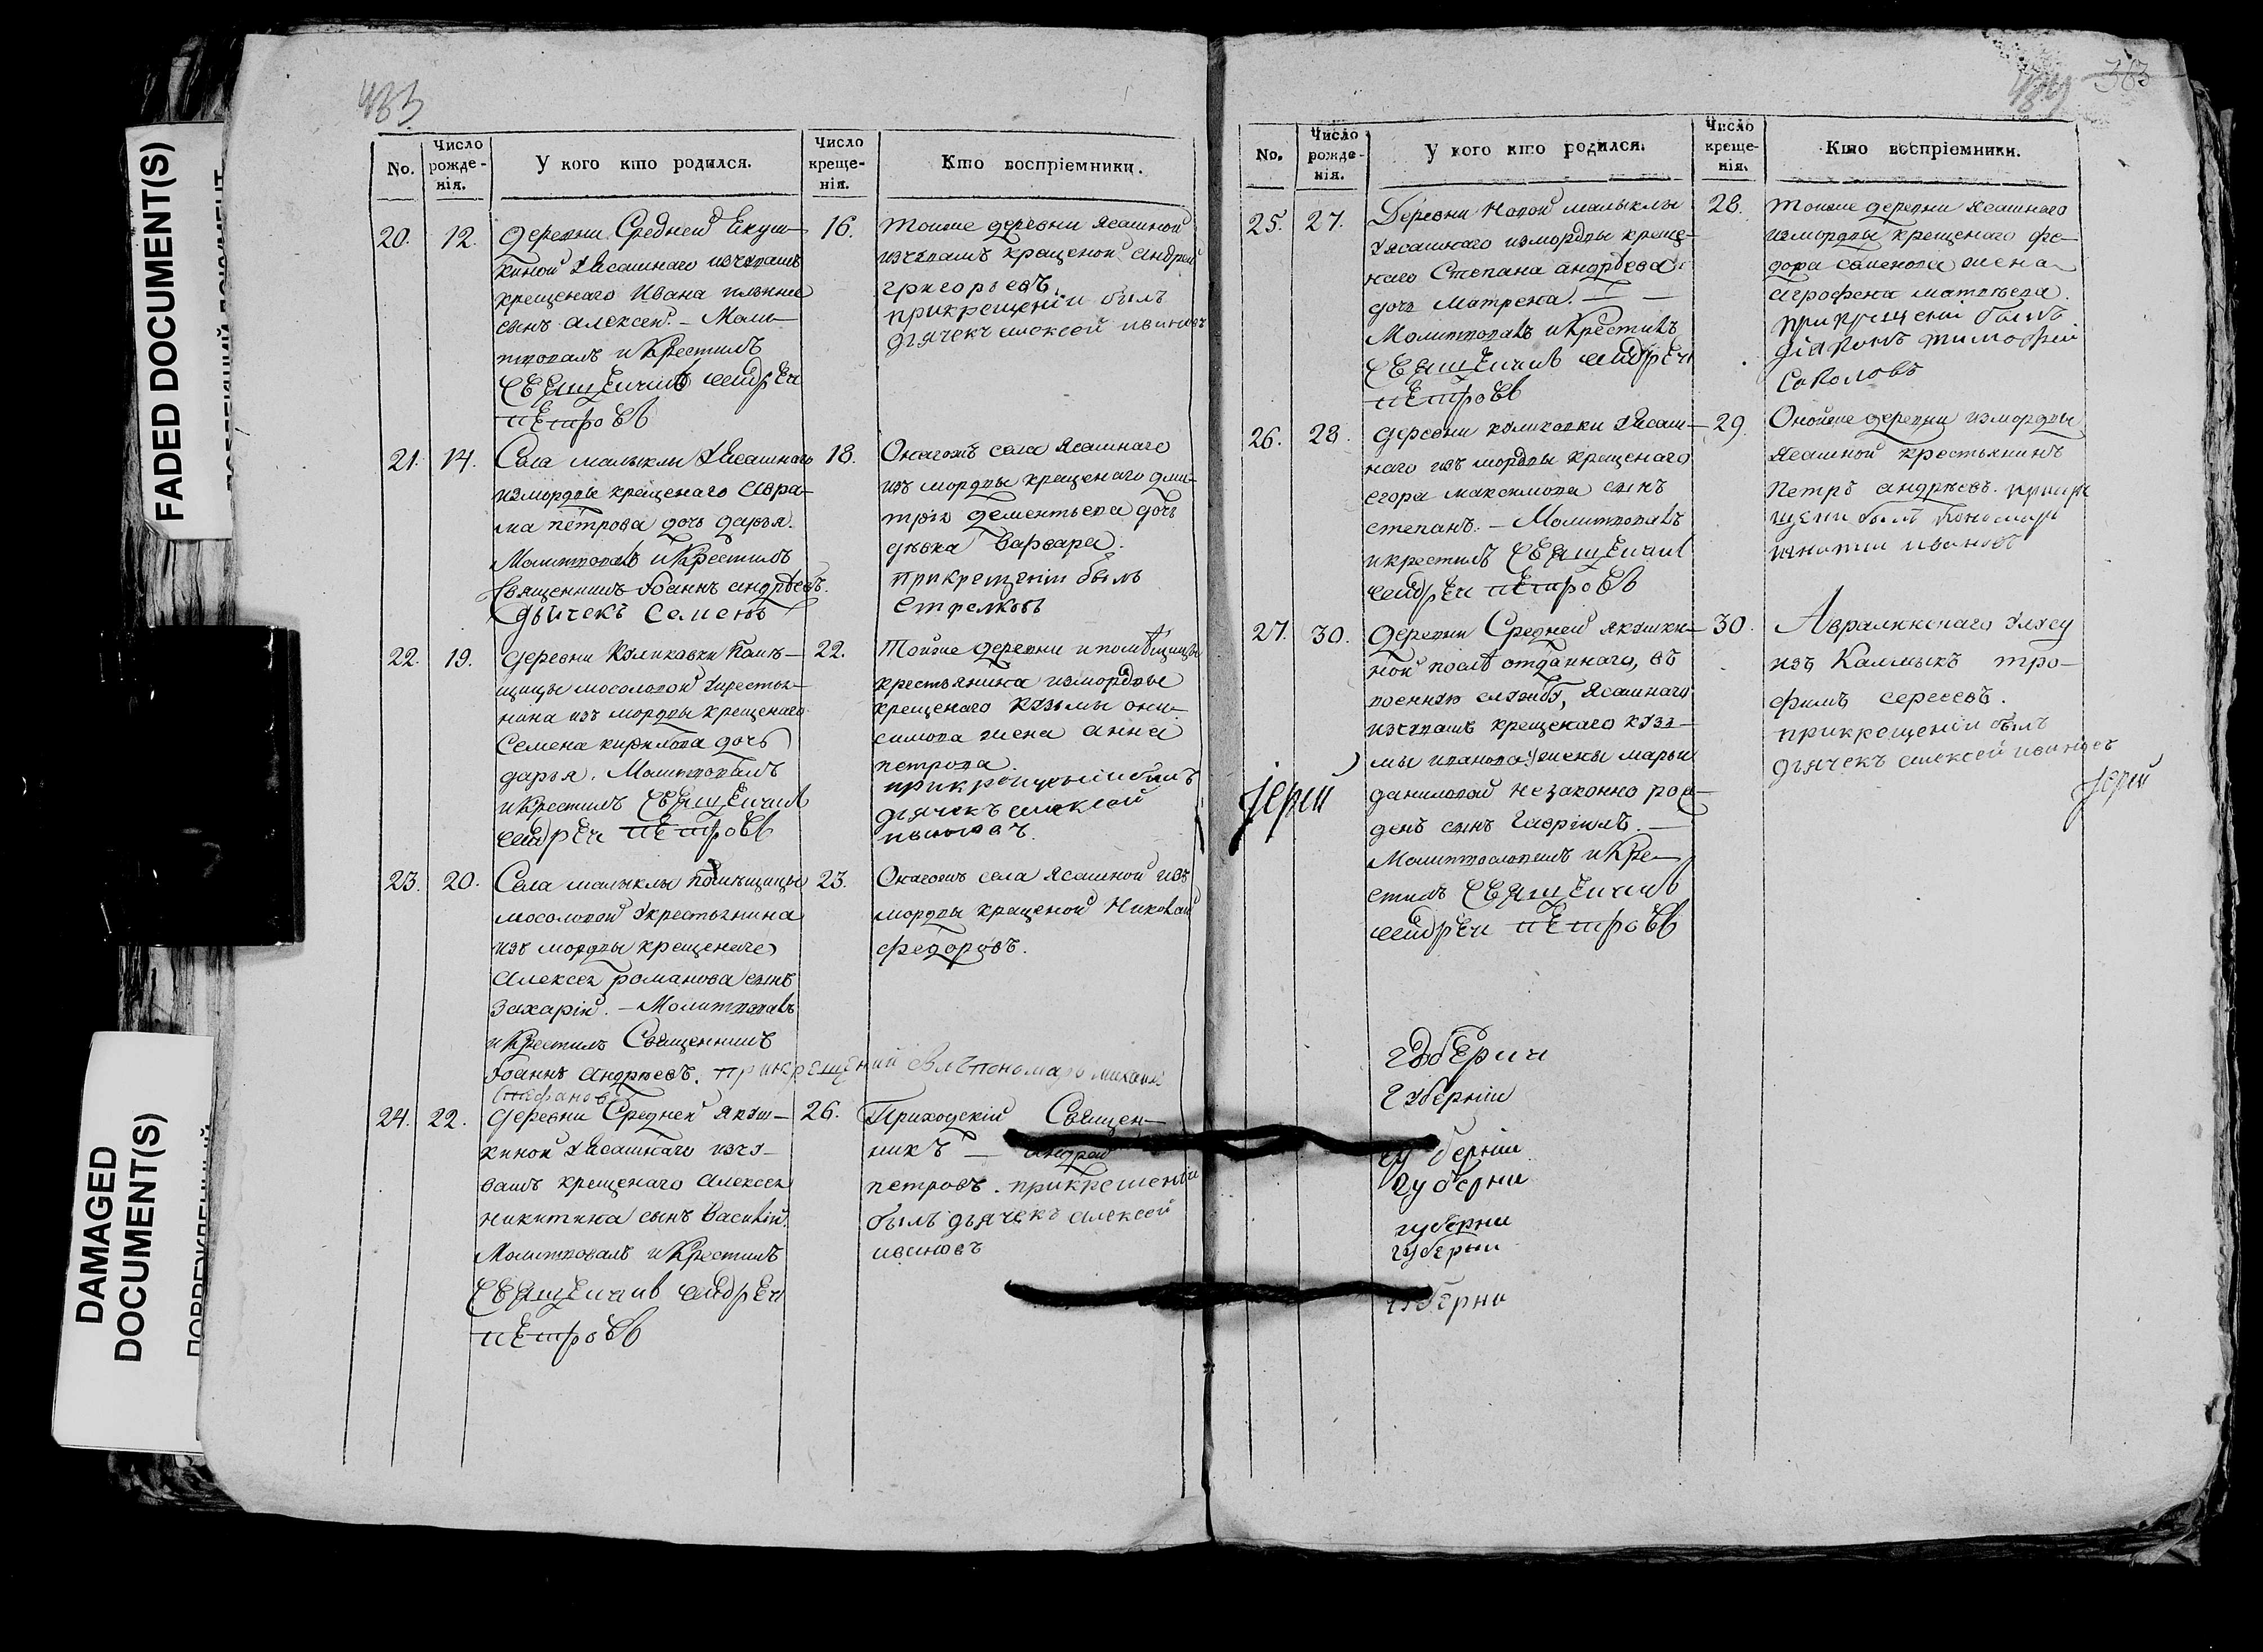 FADED DOCUMENT(S)
DAMAGED
DOCUMENT(S)
483
No.
Число
рожде-
нія.
У кого кто родился.
Число
креще-
нія.
Кто воспріемники.
20.
12.
Деревни Средней Якуш-
киной Уясашнаго изчювашъ
крещенаго Ивана
сынъ алексей. – Моли-
твовалъ и Крестилъ
священникъ андрей
петровъ
16.
Тоиже деревни ясашной
изчювашъ крещеной андрей
григорьевъ.
прикрещеніи былъ
дьячекъ алексей ивановъ
21.
14.
Села малыклы Уясашнаго
измордвы крещенаго авра-
ма петрова дочь дарья.
Молитвовалъ и Крестилъ
священникъ Іоаннъ андреевъ.
дьячекъ Семенъ
18.
Онагожъ села ясашнаго
изъ мордвы крещенаго дми-
трія дементьева дочь
девка варвара.
прикрещеніи былъ
Стрелковъ
22.
19.
деревни Куликовки Поме-
щицы мосоловой Укрестья-
нина изъ мордвы крещенаго
Семена кирилова дочь
дарья. Молитвовалъ
и Крестилъ священникъ
андрей петровъ
22.
Тойже деревни и помѣщицы
крестьянина измордвы
крещенаго кузьмы они-
симова жена анна
петрова.
прикрещеніи былъ
дьячекъ алексей
ивановъ.
23.
20.
Села малыклы помѣщицы
мосоловой Укрестьянина
изъ мордвы крещенаго
Алексея романова сынъ
Захарій. – Молитвовалъ
и Крестилъ Священникъ
Іоаннъ Андреевъ. прикрещеній былъ пономарь михаилъ
Стефановъ
23.
Онагожъ села ясашной изъ
мордвы крещеной Николай
федоровъ.
24.
22.
деревни Средней якуш-
киной Уясашнаго изчу-
вашъ крещенаго Алексея
никитина сынъ Василій.
Молитвовалъ и Крестилъ
священникъ андрей
петровъ
26.
Приходскій Священ-
никъ – андрей
петровъ. прикрещеніи
былъ дьячекъ алексей
ивановъ
383
No.
Число
рожде-
нія.
У кого кто родился.
Число
креще-
нія.
Кто воспріемники.
25.
27.
Деревни Новой малыклы
Уясашнаго измордвы креще-
наго Степана андреева
дочь матрена. –
Молитвовалъ и Крестилъ
священникъ андрей
петровъ
28.
тоиже деревни ясашнаго
измордвы крещенаго фе-
дора семенова жена
агрофена матвеева.
при крещеніи былъ
діаконъ тимофей
Соколовъ
26.
28.
деревни куликовки Уясаш-
наго изъ мордвы крещенаго
егора максимова сынъ
степанъ. – Молитвовалъ
и крестилъ священникъ
андрей петровъ
29.
Онойже деревни измордвы
ясашной крестьянинъ
петръ андреевъ. прикре
щени былъ пономарь
игнатий ивановъ
27.
30.
деревни Средней якушки-
ной послѣ отданнаго, въ
военную службу, ясашнаго
изчювашъ крещенаго кузь-
мы иванова Ужены марьи
даниловой незаконно рож-
денъ сынъ Гавріилъ. –
Молитвословилъ и Кре-
стилъ священникъ
андрей петровъ
30.
Авралинскаго Улусу
изъ Калмыкъ тро-
фимъ сергеевъ.
прикрещеніи былъ
дьячекъ алексей ивановъ
Іерей
Іерей
губерни
губерніи
губерніи
губерни
губерни
губерни
губерни